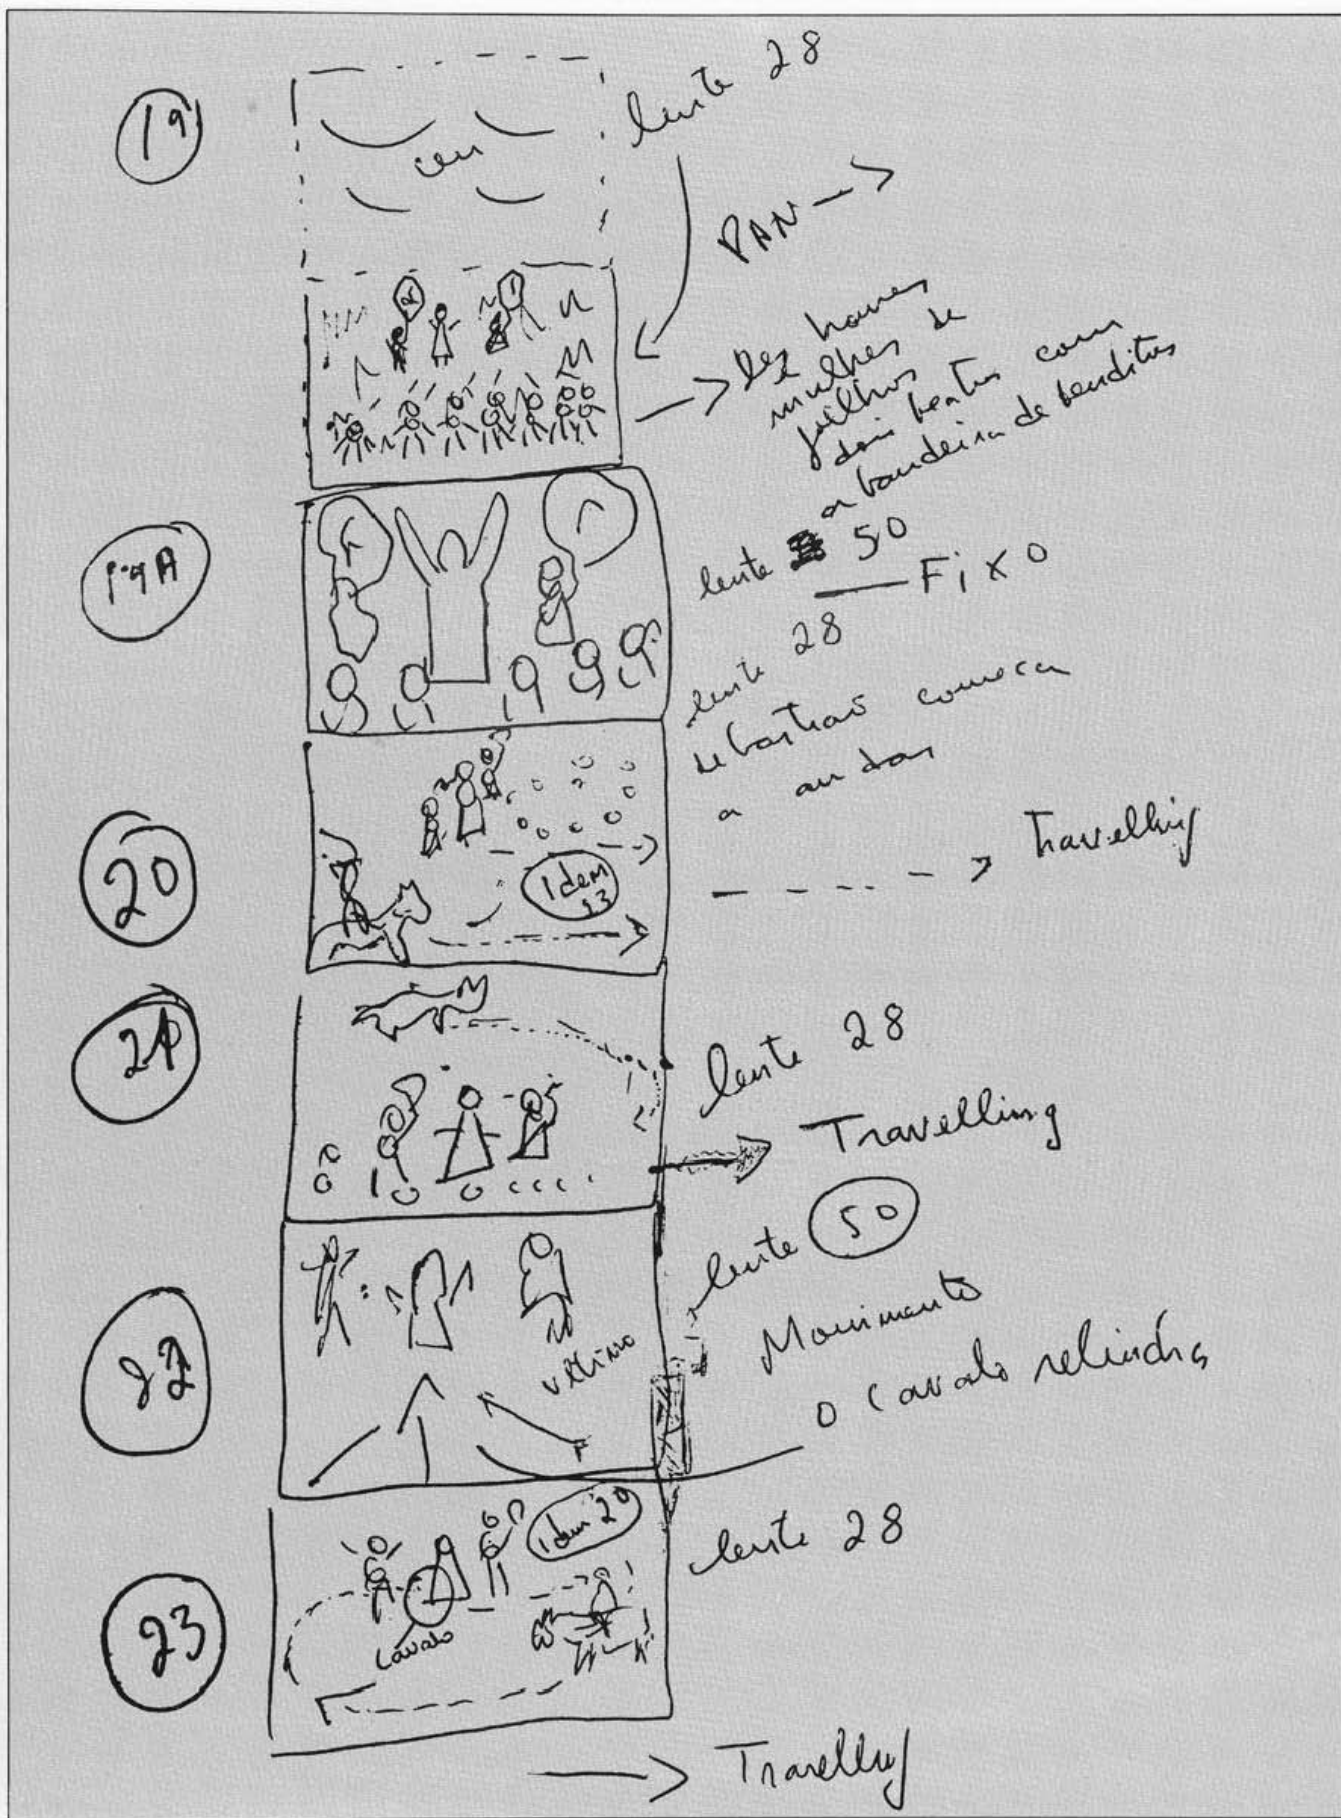 19
lente 28
ceu
PAN
Dez homens
mulhes de
joilhos
dois beatos com
a bandeira de benditos
19A
lente 50
Fixo
lente 28
sebastiao comeca
a andar
20
Idem
23
Travelling
21
lente 28
Travelling
lente 50
22
ultimo
Movimento
o cavalo relincha
Idem 20
lente 28
23
Cavalo
Travelling